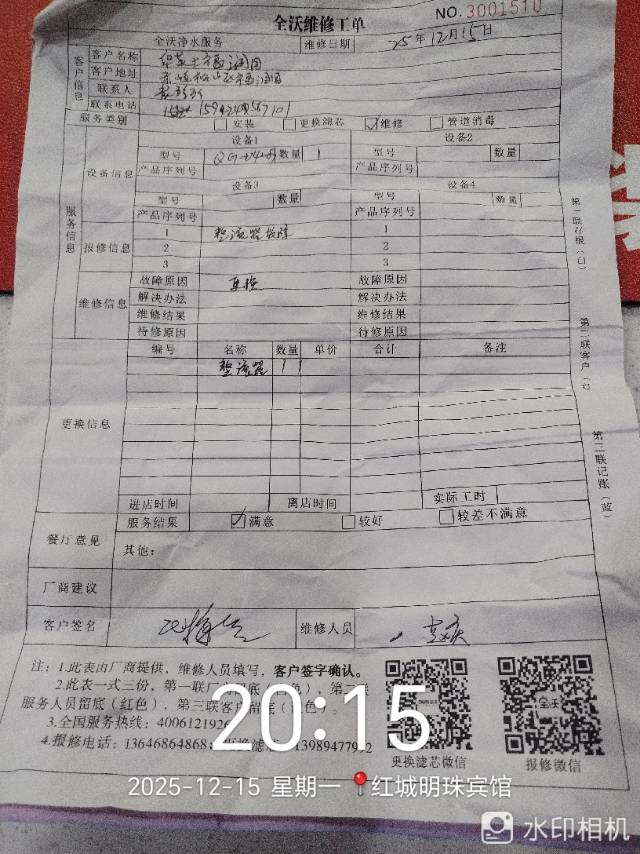 全沃维修工单
NO.3001510
全沃净水服务 维修日期 25年12月15日
客户信息
客户名称
客户地址
联系人
联系电话
服务类别 安装 更换滤芯 维修 管道消毒
服务信息
设备信息
设备1 设备2
型号 数量 1 型号 数量
产品序列号 产品序列号
设备3 设备4
型号 数量 型号 数量
产品序列号 产品序列号
报修信息
1 整流器故障 1
2 2
3 3
维修信息
故障原因 更换 故障原因
解决办法 解决办法
维修结果 维修结果
待修原因 待修原因
更换信息
编号 名称 数量 单价 合计 备注
整流器 1
进店时间 离店时间 实际工时
餐厅意见
服务结果 满意 较好 较差不满意
其他:
厂商建议
客户签名 维修人员
注: 1.此表由厂商提供,维修人员填写,客户签字确认。
2.此表一式三份,第一联厂
服务人员留底(红色),第三联客户留底
3.全国服务热线: 4006121926
4.报修电话: 13646864868 13989477992
更换滤芯微信
报修微信
第一联存根(白)
第二联客户
第三联记账(蓝)
20:15
2025-12-15 星期一 红城明珠宾馆
水印相机